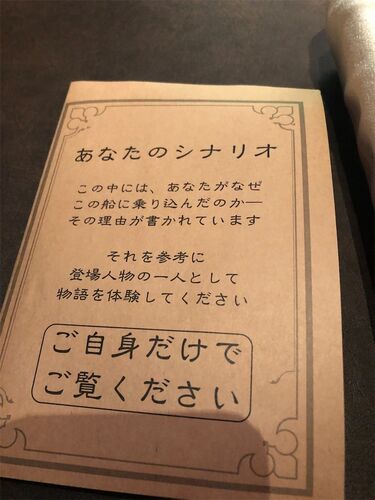 あなたのシナリオ
この中には、あなたがなぜ
この船に乗り込んだのか―
その理由が書かれています
それを参考に
登場人物の一人として
物語を体験してください
ご自身だけで
ご覧ください